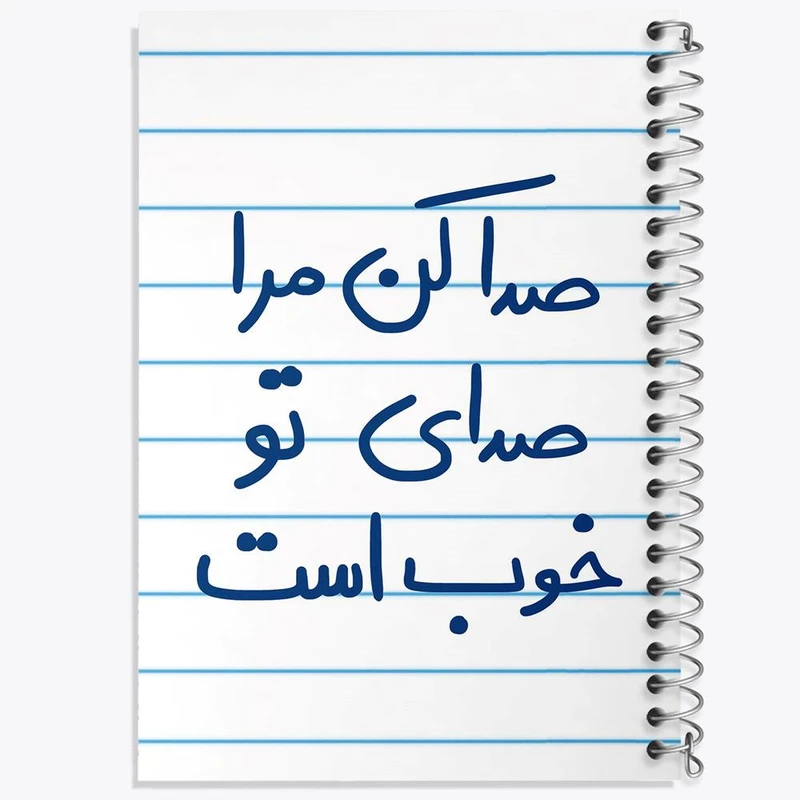 صدا کن مرا
صدای تو
خوب است